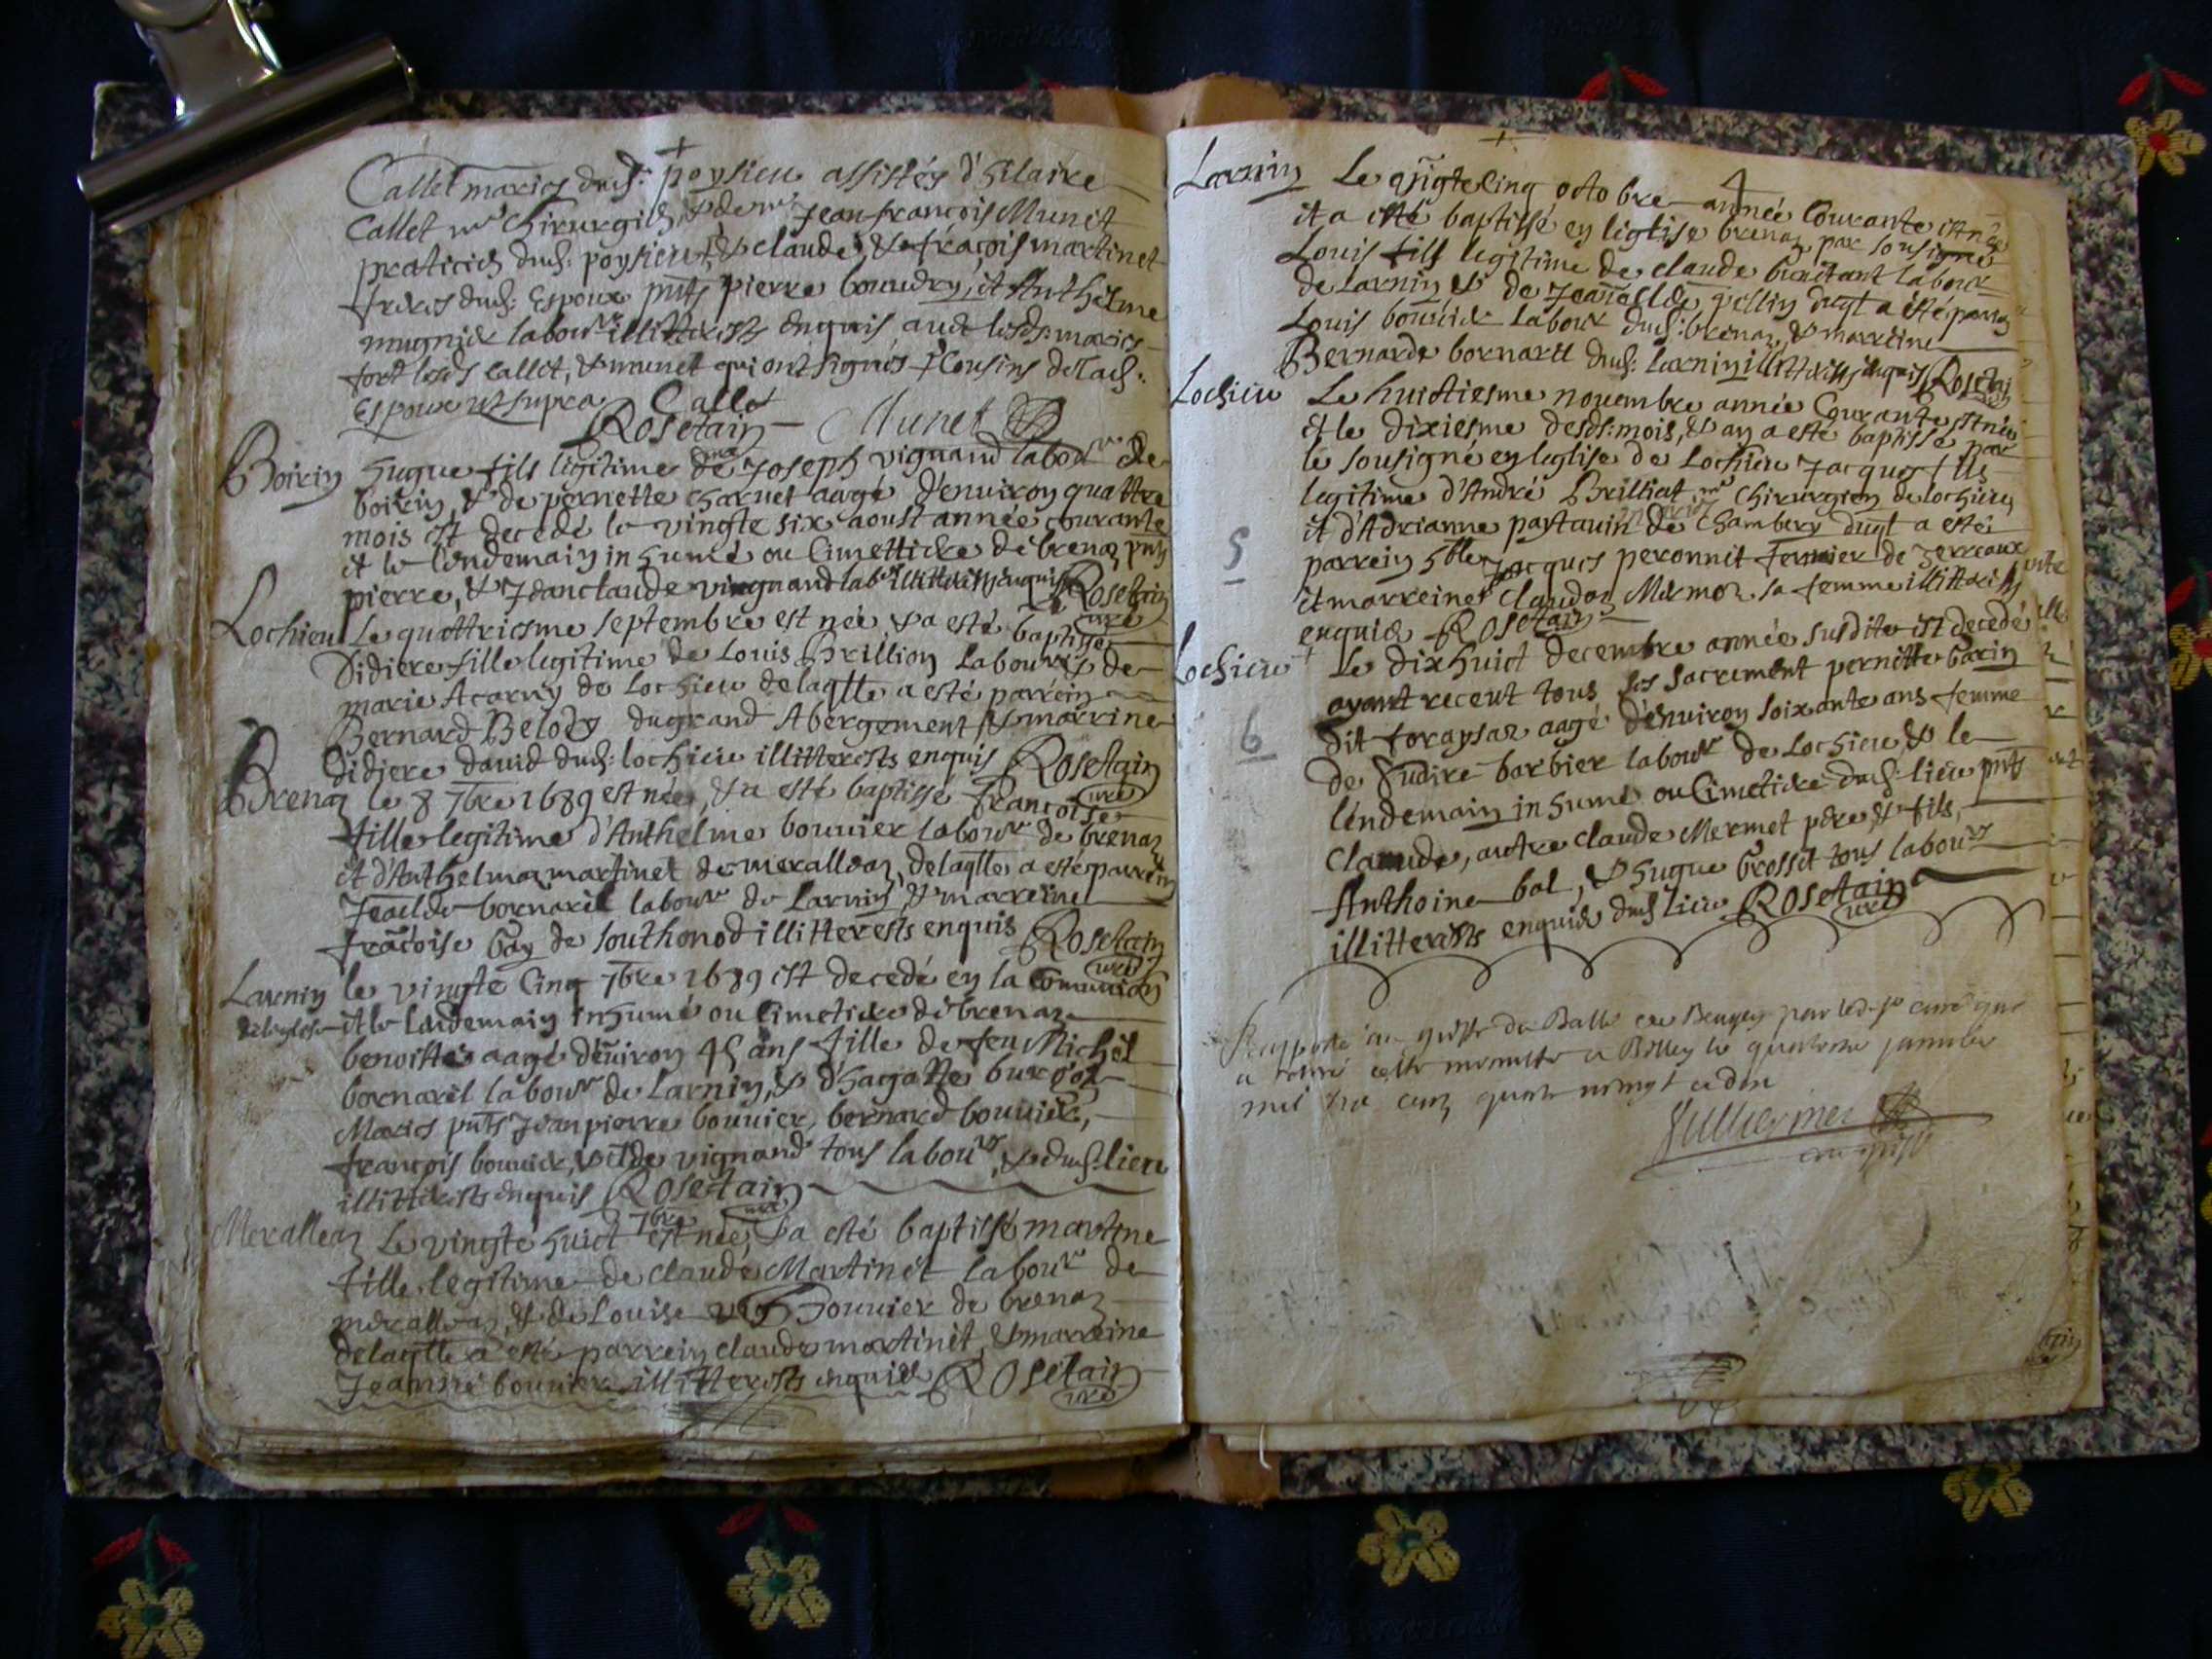 Callet mariés dud: poysieu assistés d'hilaire
Callet me Chirurgien, & de me Jean françois Munet
praticien dud: poysieu, & claude, & fraçois martinet
freres dud: Espoux pnts pierre bouudry, et Anthelme
mugnier labourrs illitterests enquis avec lesds: mariés
fort lesds callet, & munet qui ont signés + Cousins de lad:
Espouse ut supra Callet
Rosetain Munet
Boirin hugue fils legitime de me Joseph vignand labour de
boirin, & de pernette charuet aagé d'environ quattre
mois est decedé le vingte six aoust année courante
et le lendemain inhumé au Cimettiere de brenaz pnts
pierre, & Jeanclaude vingnand labrs illitterests enquis Rosetain
curé
Lochieu Le quattriesme septembre est née & a esté baptissée
Didiere fille legitime de Louis Brillion Labourr & de
marie Acarry de Lochieu delaqlle a esté parrein
Bernard Belody du grand Abergement & marrine
didiere david dud: lochieu illitterests enquis Rosetain
curé
Brenaz le 8 7bre 1689 est née, & a esté baptissé françoise
fille legitime d'Anthelme bouuier labourr de brenaz
et d'Anthelmaz martinet de meralleaz, delaqlle a esté parrein
Jeaclde bornarel labourr de Larnin & marreine
fraçoise Gay de southonod illitterests enquis Rosetain
curé
Larnin le vingte Cinq 7bre 1689 est decedé en la communion
de leglese et le lendemain inhumé au Cimetiere de brenaz
benoiste aagé d'environ 45 ans fille de feu Michel
bornarel labourr de Larnin, & d'hagatte burdet
Mariés pnts Jeanpierre bouuier, bernard bouuier,
françois bouuier, & clde vignand tous labourrs, & dud: lieu
illitterests enquis Rosetain
curé
Meralleaz Le vingte huict 7bre est née, & a esté baptissé martine
fille legitime de claude Martinet labourr de
meralleaz, & de Louise Bouuier de brenaz
delaqlle a esté parrein claude martinet, & marreine
Jeanne bouuier illitterests enquis Rosetain
curé
4
Larnin Le vingte cinq octobre année Courante est né
et a esté baptissé en leglise brenaz par sousigné
Louis fils legitime de claude labourr
de Larnin & de Jeaclde gellin duqt a esté parrein
Louis bouuier labourr dud: brenaz, & marreine
Bernarde bornarel dud: larnin illitterests enquis Rosetain
Lochieu Le huictiesme nouembre année Courante est né
et le dixiesme desds: mois, & an a esté baptissé par
le sousigné en leglise de Lochieu Jacque fils
legitime d'André Brilliat me Chirurgien de lochieu
et d'Adrianne pastauin de Chambery duqt a esté
5
parrein hble Jacques peronnet fermier de
et marreine Claudaz Mermoz sa femme illitterests
enquis Rosetain
Lochieu Le dixhuict decembre année susdite est decedé
ayant receut tous les sacrement pernette Garin
6
dit foraysaz aagé d'environ soixante ans femme
de barbier labourr de Lochieu & le
lendemain inhumé au Cimetiere dud: lieu pnts
Claude, autre claude Mermet pere, & fils,
Anthoine bal, & hugue Grosset tous labourrs
illitterests enquis dud lieu Rosetain
curé
par led. sr curé que
a cette minutte a Belley le janvier
mil six cens quatre vingt et dix